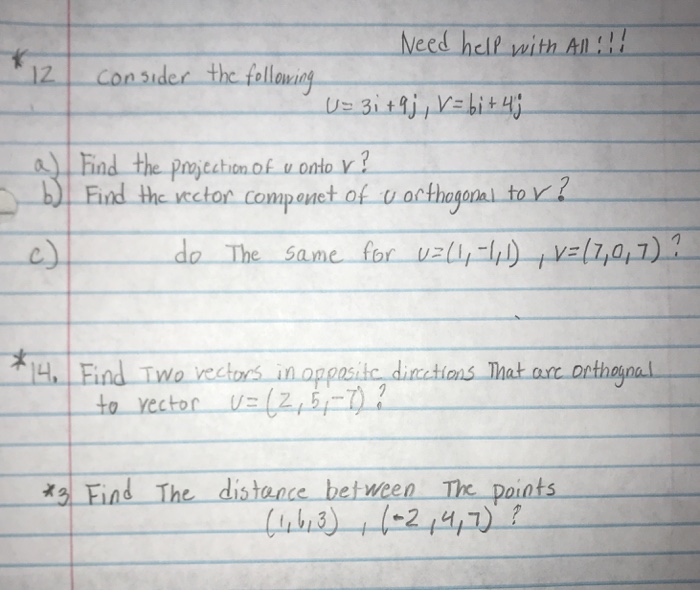 Need help with All!!!
*12 consider the following
U= 3i+9j, V=6i+4j
a) Find the projection of u onto v?
b) Find the vector componet of u orthogonal to v?
c) do The same for u=(1,-1,1), v=(7,0,7)?
*14. Find Two vectors in opposite directions That are orthognal
to vector U=(2,5,-7)?
*3 Find The distance between The points
(1,6,3), (-2,4,7)?